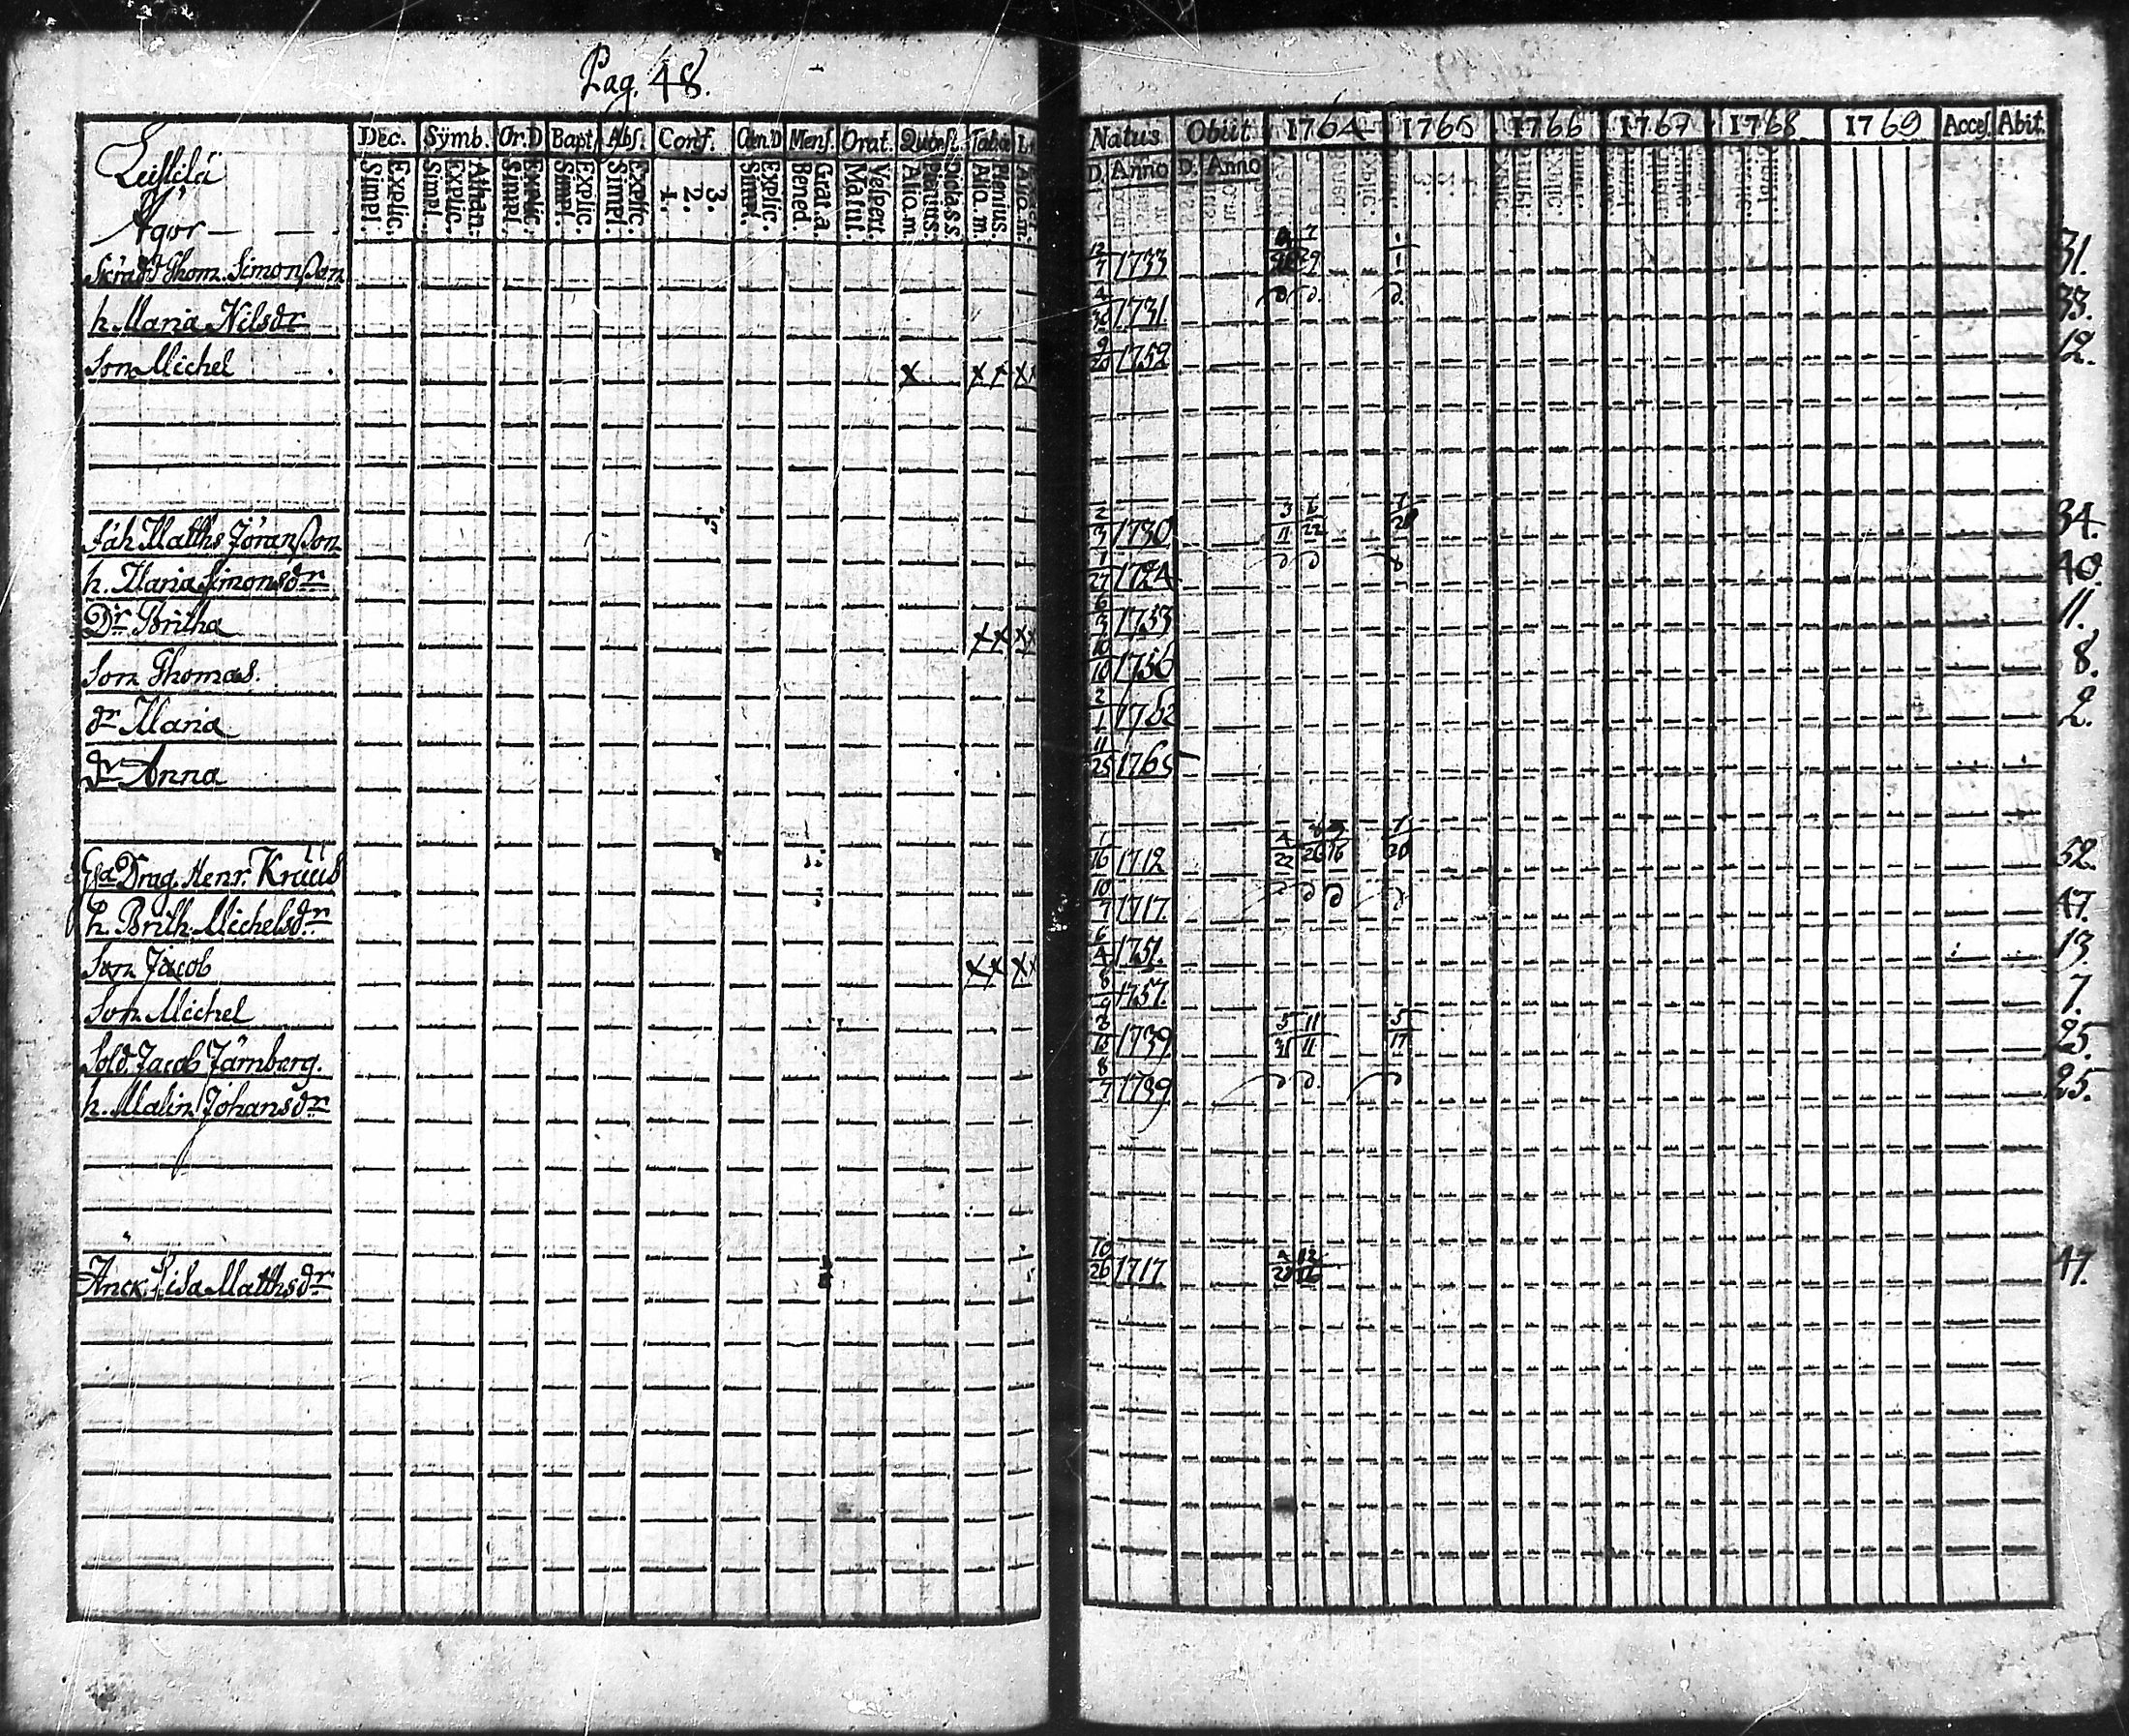 Pag. 48.
Dec. Symb. Or.D Bapt. Abs. Conf. Cœn.D Mens. Orat. Quæst. Tabæ
Natus Obiit 1764 1765 1766 1767 1768 1769 Acces. Abit.
Simpl. Explic. Simpl. Explic. Athan. Simpl. Explic. Simpl. Explic. Simpl. Explic. 1. 2. 3. Simpl. Explic. Bened. Grat. a. Matut. Vesper. Alio.m. Plenius. Dicta.s.s. Alio.m. Plenius Alio.m.
D. Anno D. Anno
Äger
Thom. Simonsson 12/7 1733 31.
h. Maria Nilsdr 1731 33.
Son Michel x x x x 9/20 1752 12.
Matths Jöransson 2/3 1730 3/11 34.
h. Maria Simonsdr 1/27 1724 40.
Dr Britha x x x x 6/3 1753 11.
Son Thomas. 10/10 1756 8.
dr Maria 2/1 1762 2.
dr Anna 11/25 1765
Drag. Henr. Kruus 1/16 1712 4/22 52
h. Brith. Michelsdr 10/7 1717. 47.
Son Jacob x x x x 6/4 1751. 13.
Son Michel 1757. 7.
Sold. Jacob Järnberg. 1739 5/31 11/11 5/17 25.
h. Malin Johansdr 8/7 1739 25.
Anck. Lisa Matthsdr 10/26 1717 47.